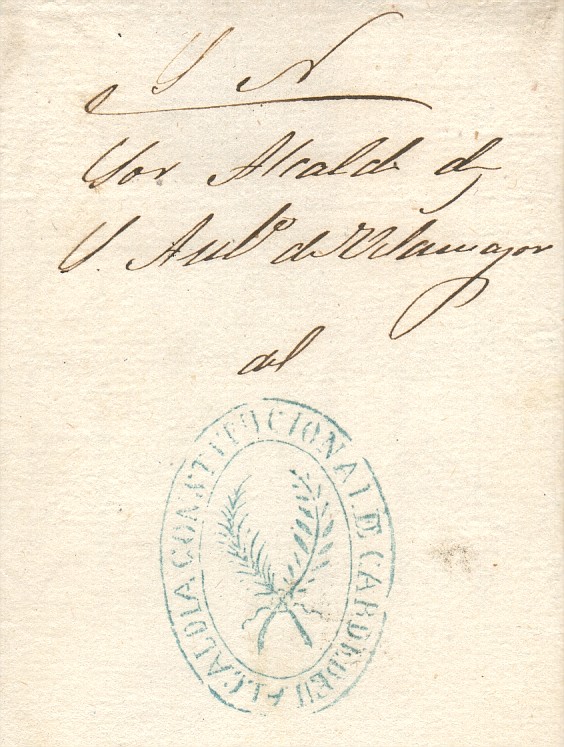 S N
Sor Alcalde de
S. Antº de Vilamajor
del
ALCALDIA CONSTITUCIONAL DE CARDEDEU